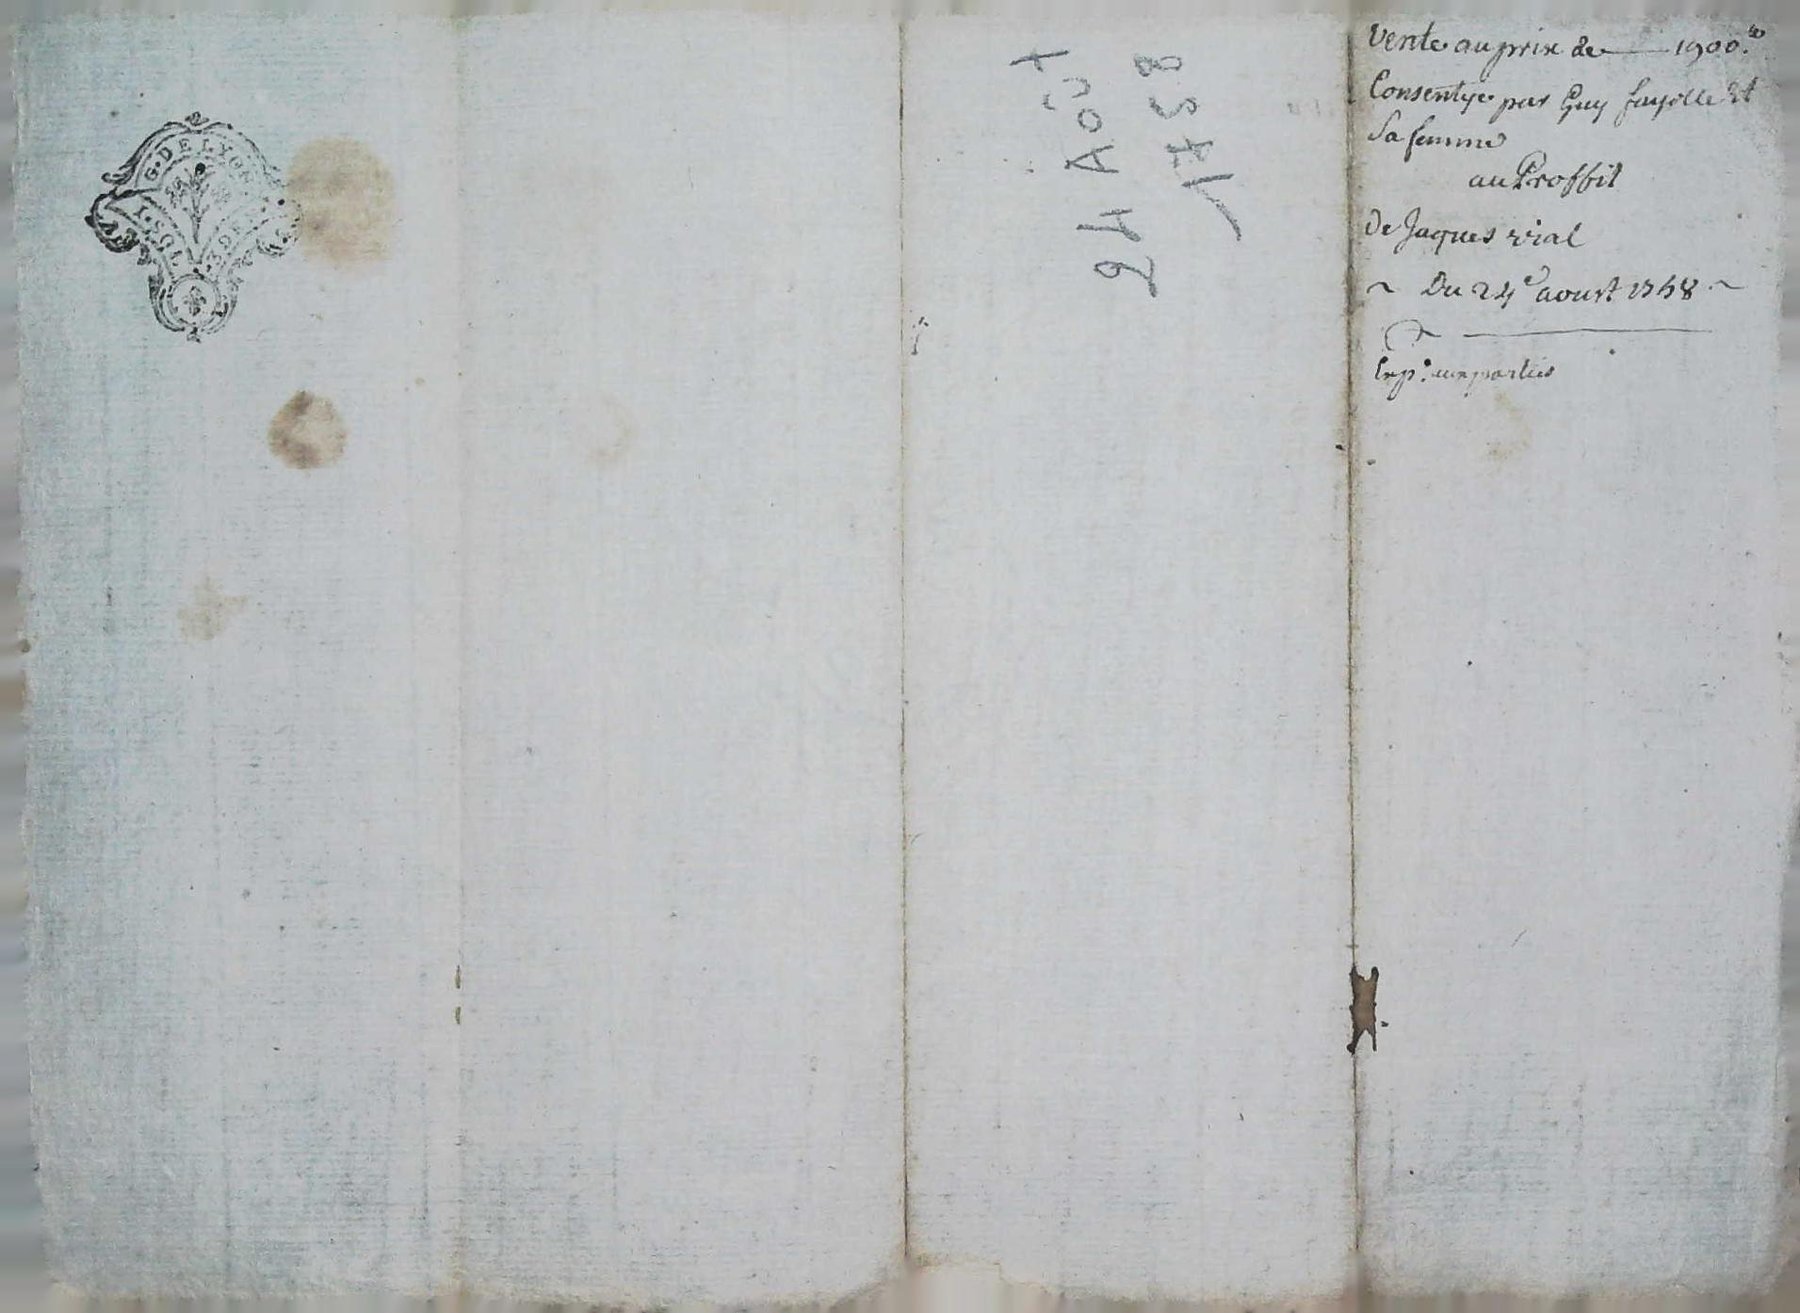 G. DE LYON
1. SOL 3 DE.
24 Août
1758
Vente au prix de — 1900.tt
Consentye par Guy fayolle Et
Sa femme
au Proffit
de Jaques vial
~ Du 24e aoust 1758 ~
Exp.° aux parties